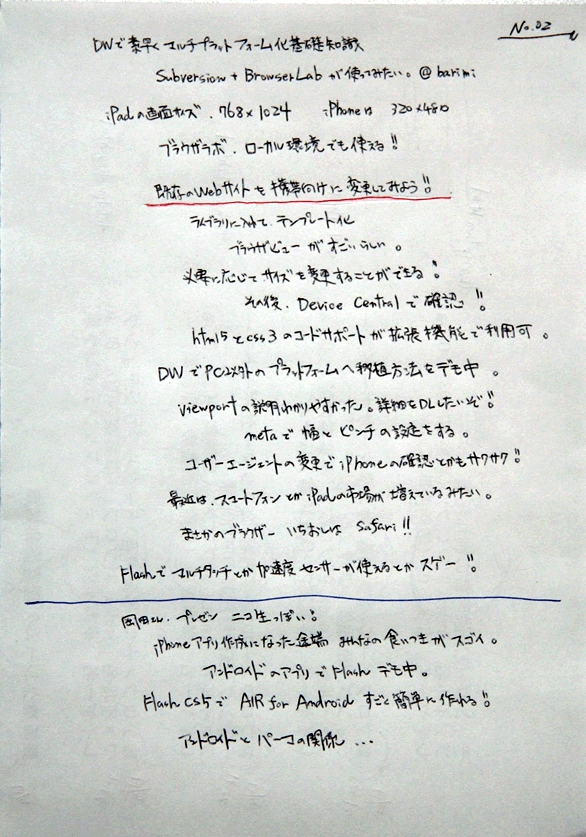 No.02
DWで素早くマルチプラットフォーム化基礎知識
Subversion + BrowserLabが使ってみたい。@barimi
iPadの画面サイズ．768×1024 iPhoneは 320×480
ブラウザラボ．ローカル環境でも使える!!
既存のWebサイトを携帯向けに変更してみよう!!
ライブラリに入れて．テンプレート化
ブラウザビューがすごいらしい。
必要に応じてサイズを変更することができる!
その後．Device Centralで確認!!
html5とcss3のコードサポートが拡張機能で利用可。
DWでPC以外のプラットフォームへ移植方法をデモ中。
viewportの説明わかりやすかった。詳細をDLしたいぞ!!
metaで幅とピンチの設定をする。
ユーザーエージェントの変更でiPhoneの確認とかもサクサク!!
最近は．スマートフォンとかiPadの市場が増えているみたい。
まさかのブラウザー いちおしは Safari!!
Flashでマルチタッチとか加速度センサーが使えるとかスゲー!!
岡田さん．プレゼン ニコ生っぽい!
iPhoneアプリ作成になった途端 みんなの食いつきがスゴイ。
アンドロイドのアプリでFlashデモ中。
Flash CS5で AIR for Android すごく簡単に作れる!!
アンドロイドとパーコの関係...